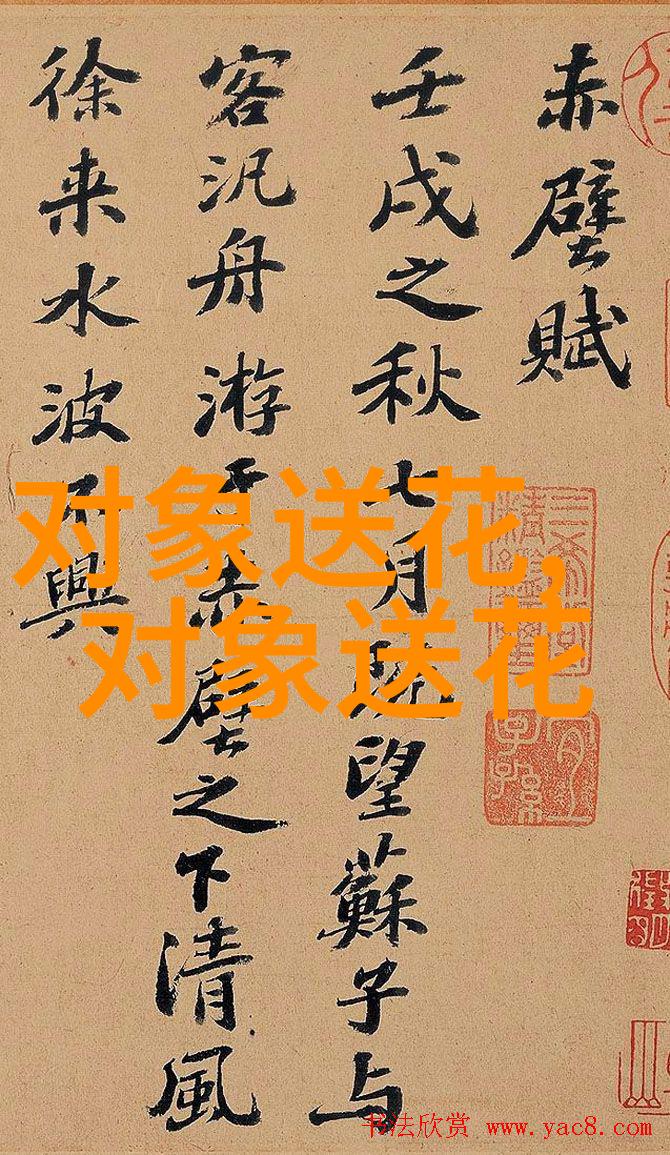 赤壁賦
壬戌之秋七月既望蘇子与
客汎舟游于赤壁之下清風
徐来水波不興
对象送花,
对象送花
三希堂
精鑑璽
宜
子孫
书法欣赏 www.yac8.com